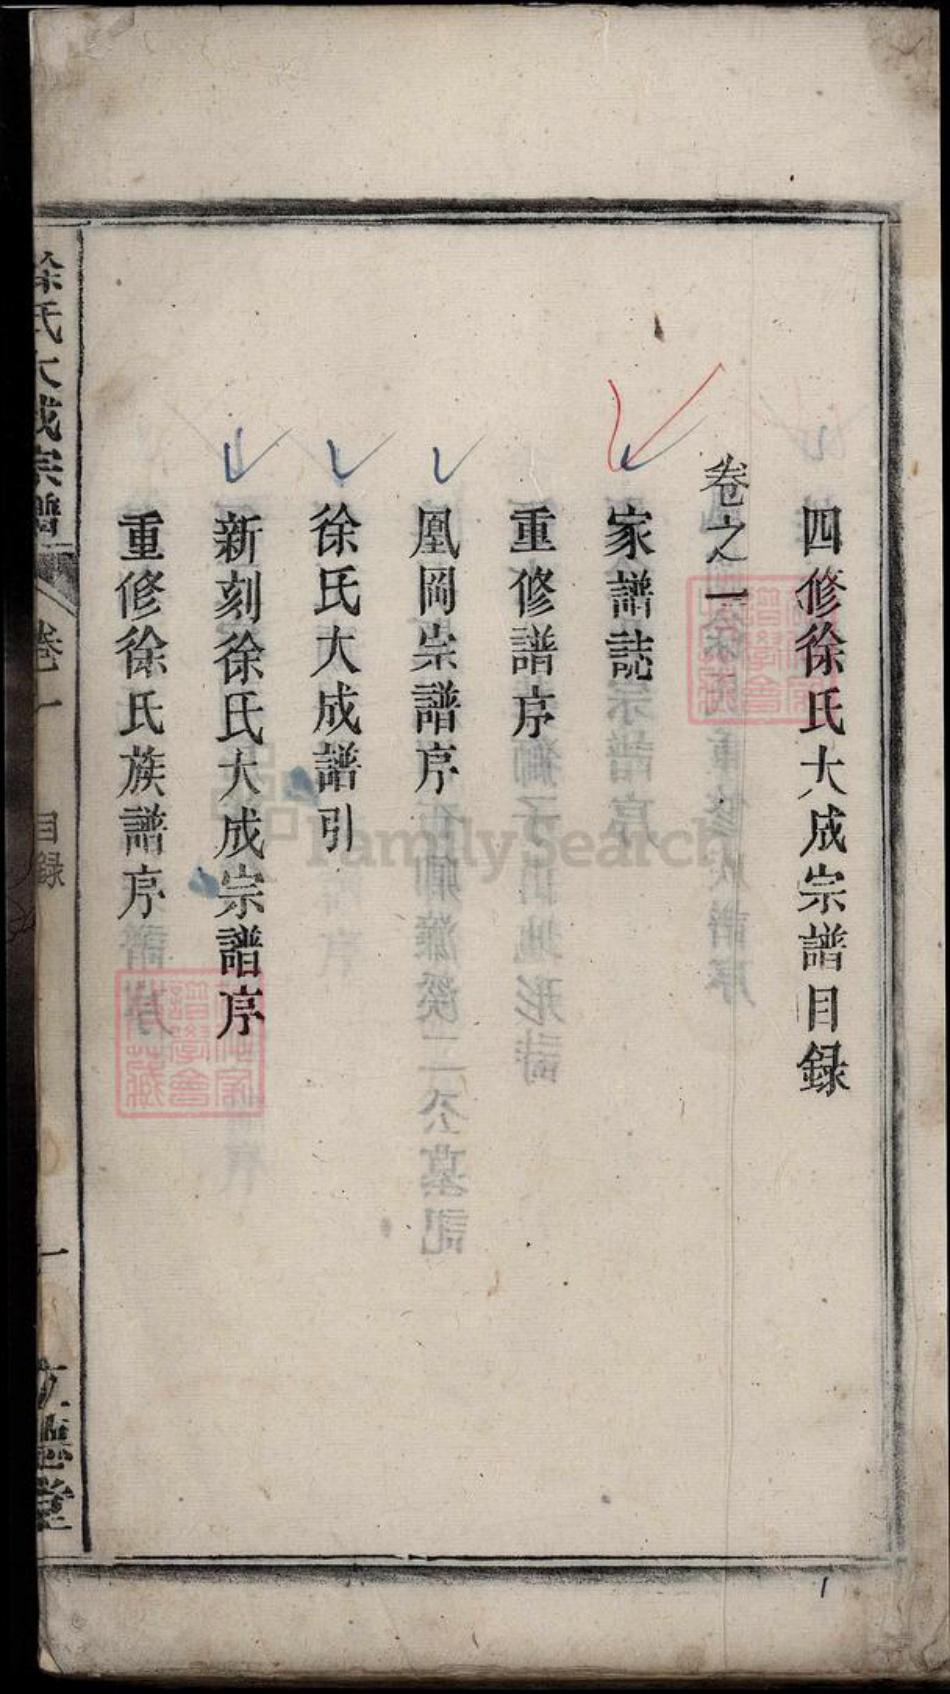 四修徐氏大成宗譜目録
卷之一
家譜誌
重修譜序
凰岡宗譜序
徐氏大成譜引
新刻徐氏大成宗譜序
重修徐氏族譜序
徐氏大成宗譜
卷一
目録
一
堂
FamilySearch
1